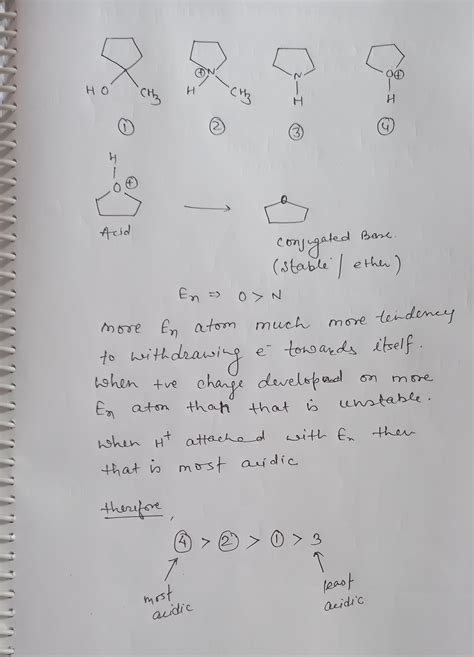 HO CH3 ⊕N H CH3 N H O⊕ H
① ② ③ ④
H
O⊕ O
Acid ⟶ conjugated Base.
(stable / ether)
En ⇒ O > N
more En atom much more tendency
to withdrawing e⁻ towards itself.
when +ve charge developed on more
En atom than that is unstable.
when H⁺ attached with En then
that is most acidic
therefore,
④ > ② > ① > 3
most least
acidic acidic